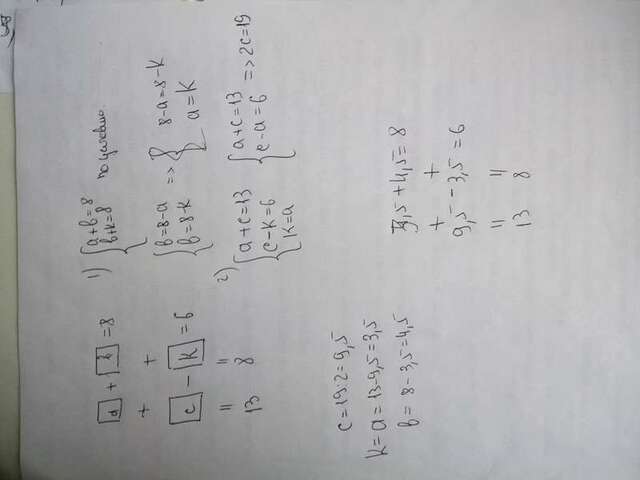 a + b = 8
+ +
c - k = 6
" "
13 8
1) { a+b=8
b+k=8 по условию.
{ b=8-a
b=8-k => { 8-a=8-k
a=k
2) { a+c=13
c-k=6
k=a
{ a+c=13
c-a=6 => 2c=19
c=19:2=9,5
k=a=13-9,5=3,5
b=8-3,5=4,5
3,5+4,5=8
+ +
9,5-3,5=6
" "
13 8